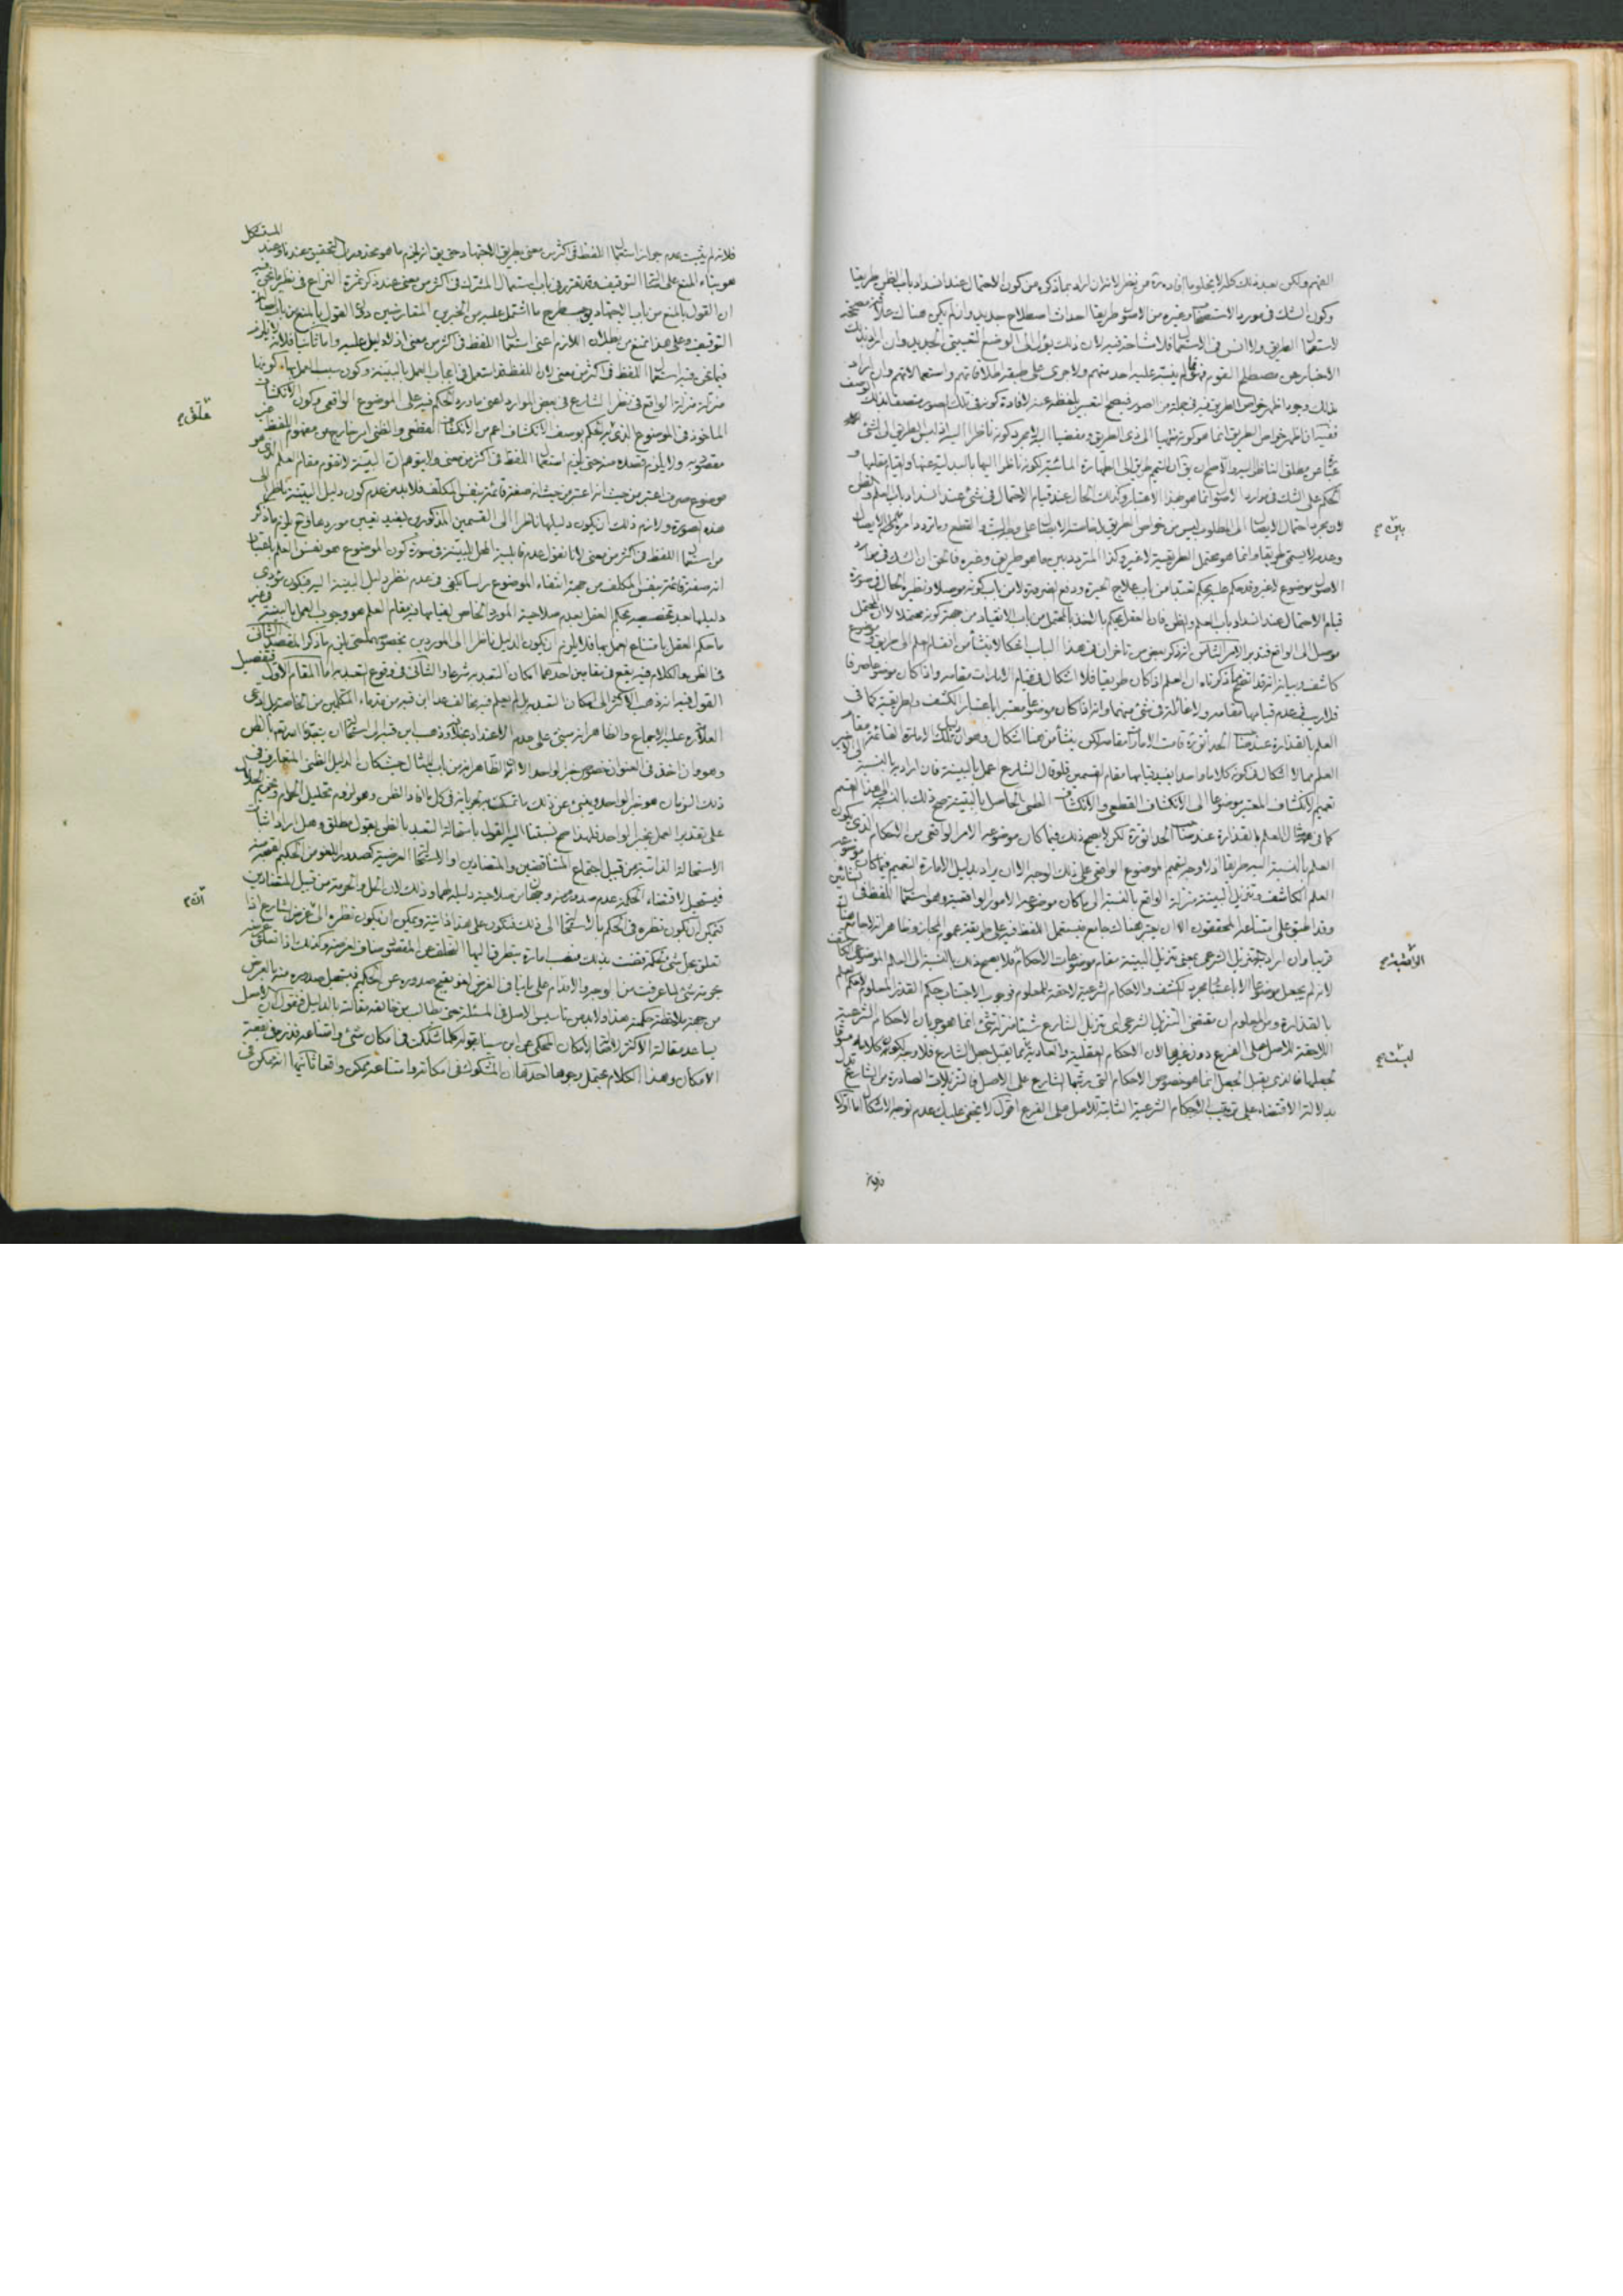 الفهم ولكن بعد ذلك كله لا يخلو ما افاده من نظر لانه ان اراد بما ذكره من كون الاحتمال عند انسداد باب الظن طريقا
وكون الشك في مورد الاستصحاب وغيره من الاصول طريقا احداث اصطلاح جديد وان لم يكن هناك علاقة مصححة
لاستعمال الطريق ولا انس في الاستعمال فلا مشاحة فيه لان ذلك يؤل الى الوضع التعييني الجديد وان اراد بذلك
الاخبار عن مصطلح القوم فهو مما لم يفسر عليه احد منهم ولا جرى على طبقه اطلاقاتهم واستعمالاتهم وان اراد
بذلك وجود اظهر خواص الطريق فيه في جملة من الصور فيصح التعبير بلفظه عنه لافادة كونه في تلك الصور متصفا بذلك الوصف
ففيه ان اظهر خواص الطريق انما هو كونه منهيا الى ذي الطريق ومفضيا اليه لا مجرد كونه ناظرا اليه اذ ليس الطريق الى الشئ
عبارة عن مطلق الناظر اليه والا صح ان يق ان التيمم طريق الى الطهارة المائية لكونه ناظرا اليها بالبدلية عنها والقيام مقامها و
الحكم على الشك في موارد الاصول انما هو بهذا الاعتبار وكذلك الحال عند قيام الاحتمال في شئ عند انسداد باب العلم والظن
لان مجرد احتمال الايصال الى المطلوب ليس من خواص الطريق
وعدمه لا يسمى طريقا وانما هو محتمل الطريقية لا غير وكذا المتردد بين ما هو طريق وغيره فالحق ان الشك في موارد
الاصول موضوع لا غير وقد حكم عليه بحكم تعبدا من باب علاج الحيرة ودفع الضرورة لا من باب كونه موصلا ونظيره الحال في صورة
قيام الاحتمال عند انسداد باب العلم والظن فان العقل يحكم بالتعبد بالمحتمل من باب الانقياد من جهة كونه محتملا لا لان المحتمل
موصل الى الواقع فتدبر الامر الثالث انه ذكر بعض من تاخر ان في هذا الباب اشكالا ينشأ من انقسام العلم الى طريق وموضوع
كاشف وبيانه انه قد اتضح بما ذكرناه ان العلم اذا كان طريقا فلا اشكال في قيام الامارات مقامه واذا كان موضوعا صرفا
فلا ريب في عدم قيامها مقامه ولا غائلة في شئ منهما وانه اذا كان موضوعا معتبرا باعتبار الكشف والطريقية كما في
العلم بالقذارة عند صاحب الحدائق ره قامت الامارات مقامه لكن ينشأ من هنا اشكال وهو ان دليل تلك الامارة القائمة مقام
العلم مما لا اشكال في كونه كلاما واحدا يفيد قيامها مقام القسمين فلو قال الشارع اعمل بالبينة فان اراد به بالنسبة الى الاخير
تعميم الانكشاف المعتبر موضوعا الى الانكشاف القطعي والانكشاف الظني الحاصل بالبينة صح ذلك بالنسبة الى هذا القسم
كما في مثال العلم بالقذارة عند صاحب الحدائق ره لكن لا يصح ذلك فيما كان موضوعه الامر الواقعي من الاحكام الذي يكون
العلم بالنسبة اليه طريقا اذ لا وجه لتعميم الموضوع الواقعي على ذلك الوجه الا ان يراد بدليل الامارة التعميم فيما كان موضوعه
العلم الكاشف وتنزيل البينة منزلة الواقع بالنسبة الى ما كان موضوعه الامور الواقعية وهو استعمال اللفظ في معنيين
وقد اطبق على امتناعه المحققون الا ان يعتبر هناك جامع فيستعمل اللفظ فيه على طريقة عموم المجاز وظاهر انه لا جامع هنا
قريبا وان اراد به التنزيل الشرعي بمعنى تنزيل البينة مقام موضوعات الاحكام فلا يصح ذلك بالنسبة الى العلم الموضوعي الكاشف
لانه لم يجعل موضوعا الا باعتبار مجرد الكشف والاحكام الشرعية لاحقة للمعلوم فوجوب الاجتناب حكم القذر المعلوم لا حكم العلم
بالقذارة ومن المعلوم ان مقتضى التنزيل الشرعي اي تنزيل الشارع شيئا منزلة شئ انما هو جريان الاحكام الشرعية
اللاحقة للاصل على الفرع دون غيرها لان الاحكام العقلية والعادية مما لا يقبل جعل الشارع فلا وجه لكون كلامه مسوقا
لجعلها فالذي يقبل الجعل انما هو خصوص الاحكام التي رتبها الشارع على الاصل فالتنزيلات الصادرة من الشارع تدل
بدلالة الاقتضاء على ترتيب الاحكام الشرعية الثابتة للاصل على الفرع اقول لا يخفى عليك عدم توجه الاشكال اما اولا
فلانه
فلانه لم يثبت عدم جواز استعمال اللفظ في اكثر من معنى بطريق الاجتهاد حتى يق انه يلزم ما هو محذور بل التحقيق عندنا وعند المستشكل
هو بناء المنع على التوقيف وقد تقرر في باب استعمال المشترك في اكثر من معنى عند ذكر ثمرة النزاع في نظير ما نحن فيه
ان القول بالمنع من باب الاجتهاد يوجب طرح ما اشتمل عليه من الخبرين المتعارضين دون القول بالمنع من باب
التوقيف وعلى هذا نمنع من بطلان اللازم اعني استعمال اللفظ في اكثر من معنى اذ لا دليل عليه واما ثانيا فلانه لا يلزم
فيما نحن فيه استعمال اللفظ في اكثر من معنى لان اللفظ قد استعمل في ايجاب العمل بالبينة وكون سبب العمل بها كونها
منزلة منزلة الواقع في نظر الشارع في بعض الموارد اعني ما ورد الحكم فيه على الموضوع الواقعي وكون الانكشاف
الماخوذ في الموضوع الذي قيد الحكم بوصف الانكشاف اعم من الانكشاف القطعي والظني امر خارج عن مفهوم اللفظ غير
مقصود به ولا يلزم قصده منه حتى يلزم استعمال اللفظ في اكثر من معنى ولا يتوهم ان البينة لا تقوم مقام العلم الذي هو
موضوع صرف اعتبر من حيث انه صفة قائمة بنفس المكلف فلا بد من عدم كون دليل البينة ناظرا الى
هذه الصورة ولازم ذلك ان يكون دليلها ناظرا الى القسمين المذكورين ليفيد تعيين موردها وح يلزم ما ذكر
من استعمال اللفظ في اكثر من معنى لانا نقول عدم قابلية المحل للبينة في صورة كون الموضوع هو نفس العلم باعتبار
انه صفة قائمة بنفس المكلف من جهة انتفاء الموضوع راسا يكفي في عدم نظر دليل البينة اليه فيكون مؤدى
دليلها بعد تخصيصه بحكم العقل بعدم صلاحية المورد الخاص لقيامها فيه مقام العلم هو وجوب العمل بالبينة في غير
ما حكم العقل بامتناع العمل بها فلا يلزم ان يكون الدليل ناظرا الى الموردين بخصوصهما حتى يلزم ما ذكر المقصد الثاني
في الظن والكلام فيه يقع في مقامين احدهما امكان التعبد به شرعا والثاني في وقوع التعبد به اما المقام الاول فتفصيل
القول فيه انه ذهب الاكثر الى امكان التعبد به بل لم يعلم فيه مخالف عدا ابن قبه من قدماء المتكلمين من الخاصة بل ادعى
العلامة ره عليه الاجماع والظاهر انه مبني على عدم الاعتداد بخلافه وذهب ابن قبه الى استحالة ان يتعبدنا الله تعم بالظن
وهو وان اخذ في العنوان خصوص خبر الواحد الا ان الظاهر انه من باب المثال حيث كان الدليل الظني المتعارف في
ذلك الزمان هو خبر الواحد وينبئ عن ذلك ما تمسك به لجريانه في كل ما افاد الظن وهو لزوم تحليل الحرام وتحريم الحلال
على تقدير العمل بخبر الواحد فلهذا صح نسبتنا اليه القول باستحالة التعبد بالظن بقول مطلق وهل اراد اثبات
الاستحالة الذاتية من قبيل اجتماع المتناقضين والمتضادين او الاستحالة العرضية كصدور اللغو من الحكيم لقبحه
فيستحيل لاقتضاء الحكمة عدم صدوره منه وجهان من صلاحية دليله لهما وذلك لان الحل والحرمة من قبيل المتضادين
فيمكن ان يكون نظره في الحكم بالاستحالة الى ذلك فتكون على هذا ذاتية ويمكن ان يكون نظره الى ان غرض الشارع اذا
تعلق بحل شئ لحكمة قضت بذلك فنصب امارة يتطرق اليها التخلف عن المقصود مناف لغرضه وكذلك اذا تعلق غرضه
بحرمة شئ لما عرفت من الوجه والاقدام على ما ينافي الغرض لغو يقبح صدوره عن الحكيم فيستحيل صدوره منه بالعرض
من جهة ملاحظة حكمته هذا ولا بد من تاسيس الاصل في المسئلة حتى يطالب من خالفه مقالته بالدليل فنقول ان الاصل
يساعد مقالة الاكثر لاصالة الامكان المحكي عن ابن سينا بقوله كلما شككت في امكان شئ وامتناعه فذره في بقعة
الامكان وهذا الكلام يحتمل وجوها احدها ان المشكوك في امكانه وامتناعه ممكن واقعا ثانيها انه ممكن في